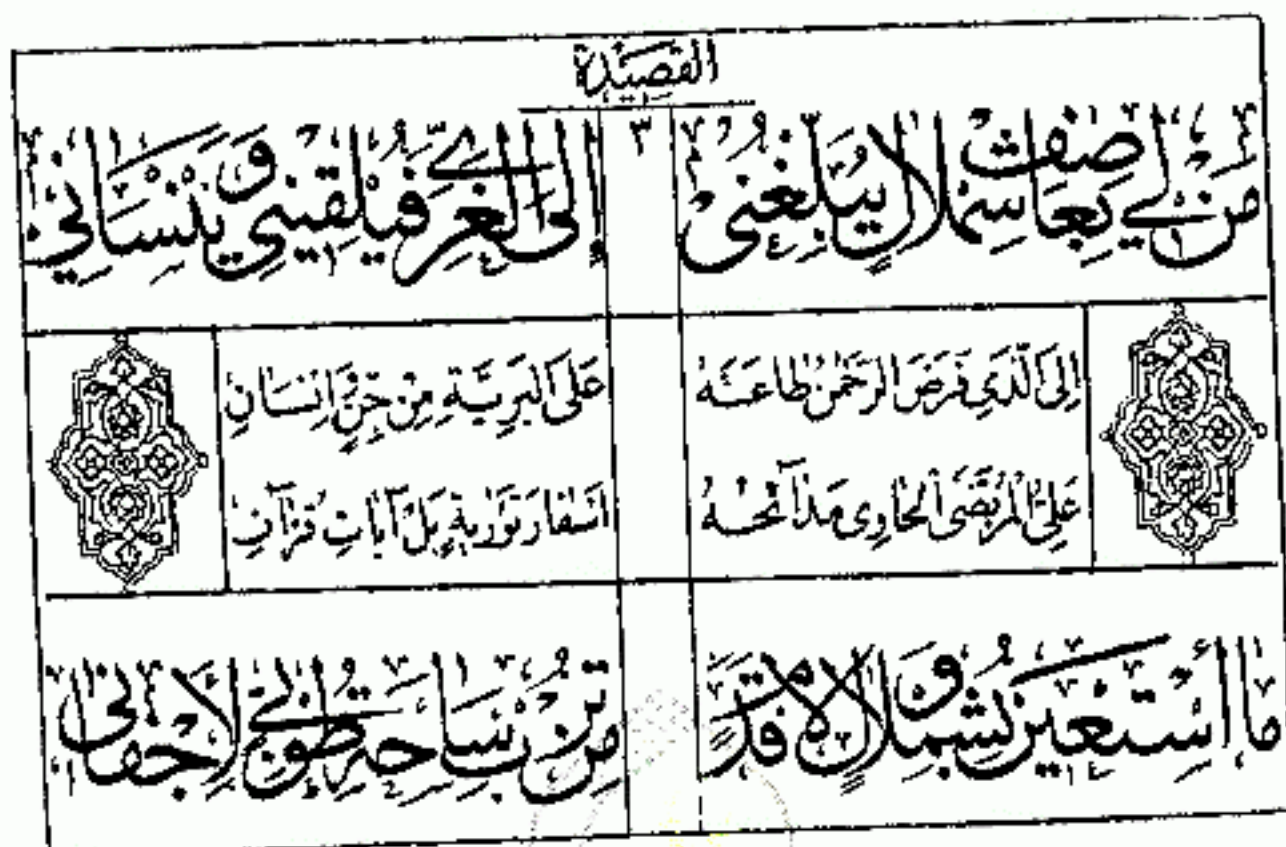 القصيدة
مَنْ لِي بِعَاصِفِ شِمْلَالٍ يُبَلِّغُنِي ٣ إِلَى الْغَرِيِّ فَيُلْقِينِي وَيَنْسَانِي
اِلَى الَّذِي فَرَضَ الرَّحْمٰنُ طَاعَتَهُ عَلَى الْبَرِيَّةِ مِنْ جِنٍّ وَاِنْسَانٍ
عَلِيٍّ الْمُرْتَضَى الْحَاوِى مَدَآئِحُهُ اَسْفَارَ تَوْرٰيةٍ بَلْ آيَاتِ قُرْآنِ
مَا أَسْتَعِينُ بِشِمْلَالٍ وَلَا قَدَمٍ مِنْ تُرْبِ سَاحَتِهِ طُوبَى لِأَجْفَانِي